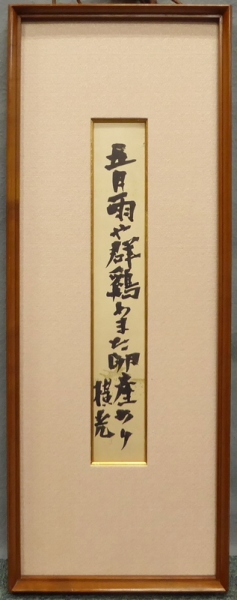 五月雨や群鶏あまた卵産めり
樸堂